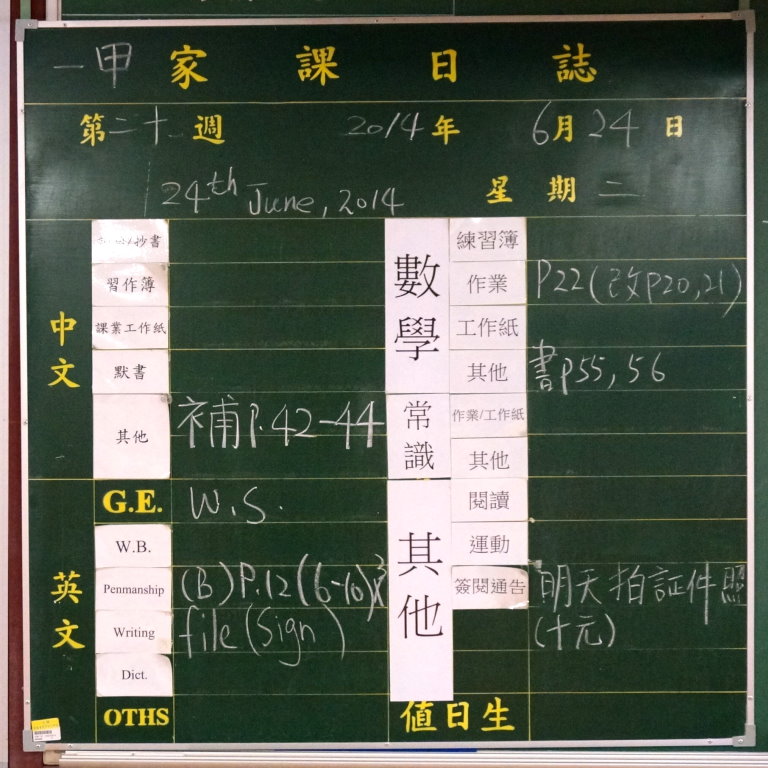 一甲 家課日誌
第二十 週 2014年 6月24日
24th June, 2014 星期二
中文
/抄書
習作簿
課業工作紙
默書
其他 補P.42-44
英文
G.E. W.S.
W.B.
Penmanship (B)P.12(6-10)
Writing file(Sign)
Dict.
OTHS
數學
練習簿
作業 P22(改P20,21)
工作紙
其他 書P55,56
常識
作業/工作紙
其他
其他
閱讀
運動
簽閱通告 明天拍証件照
(十元)
值日生